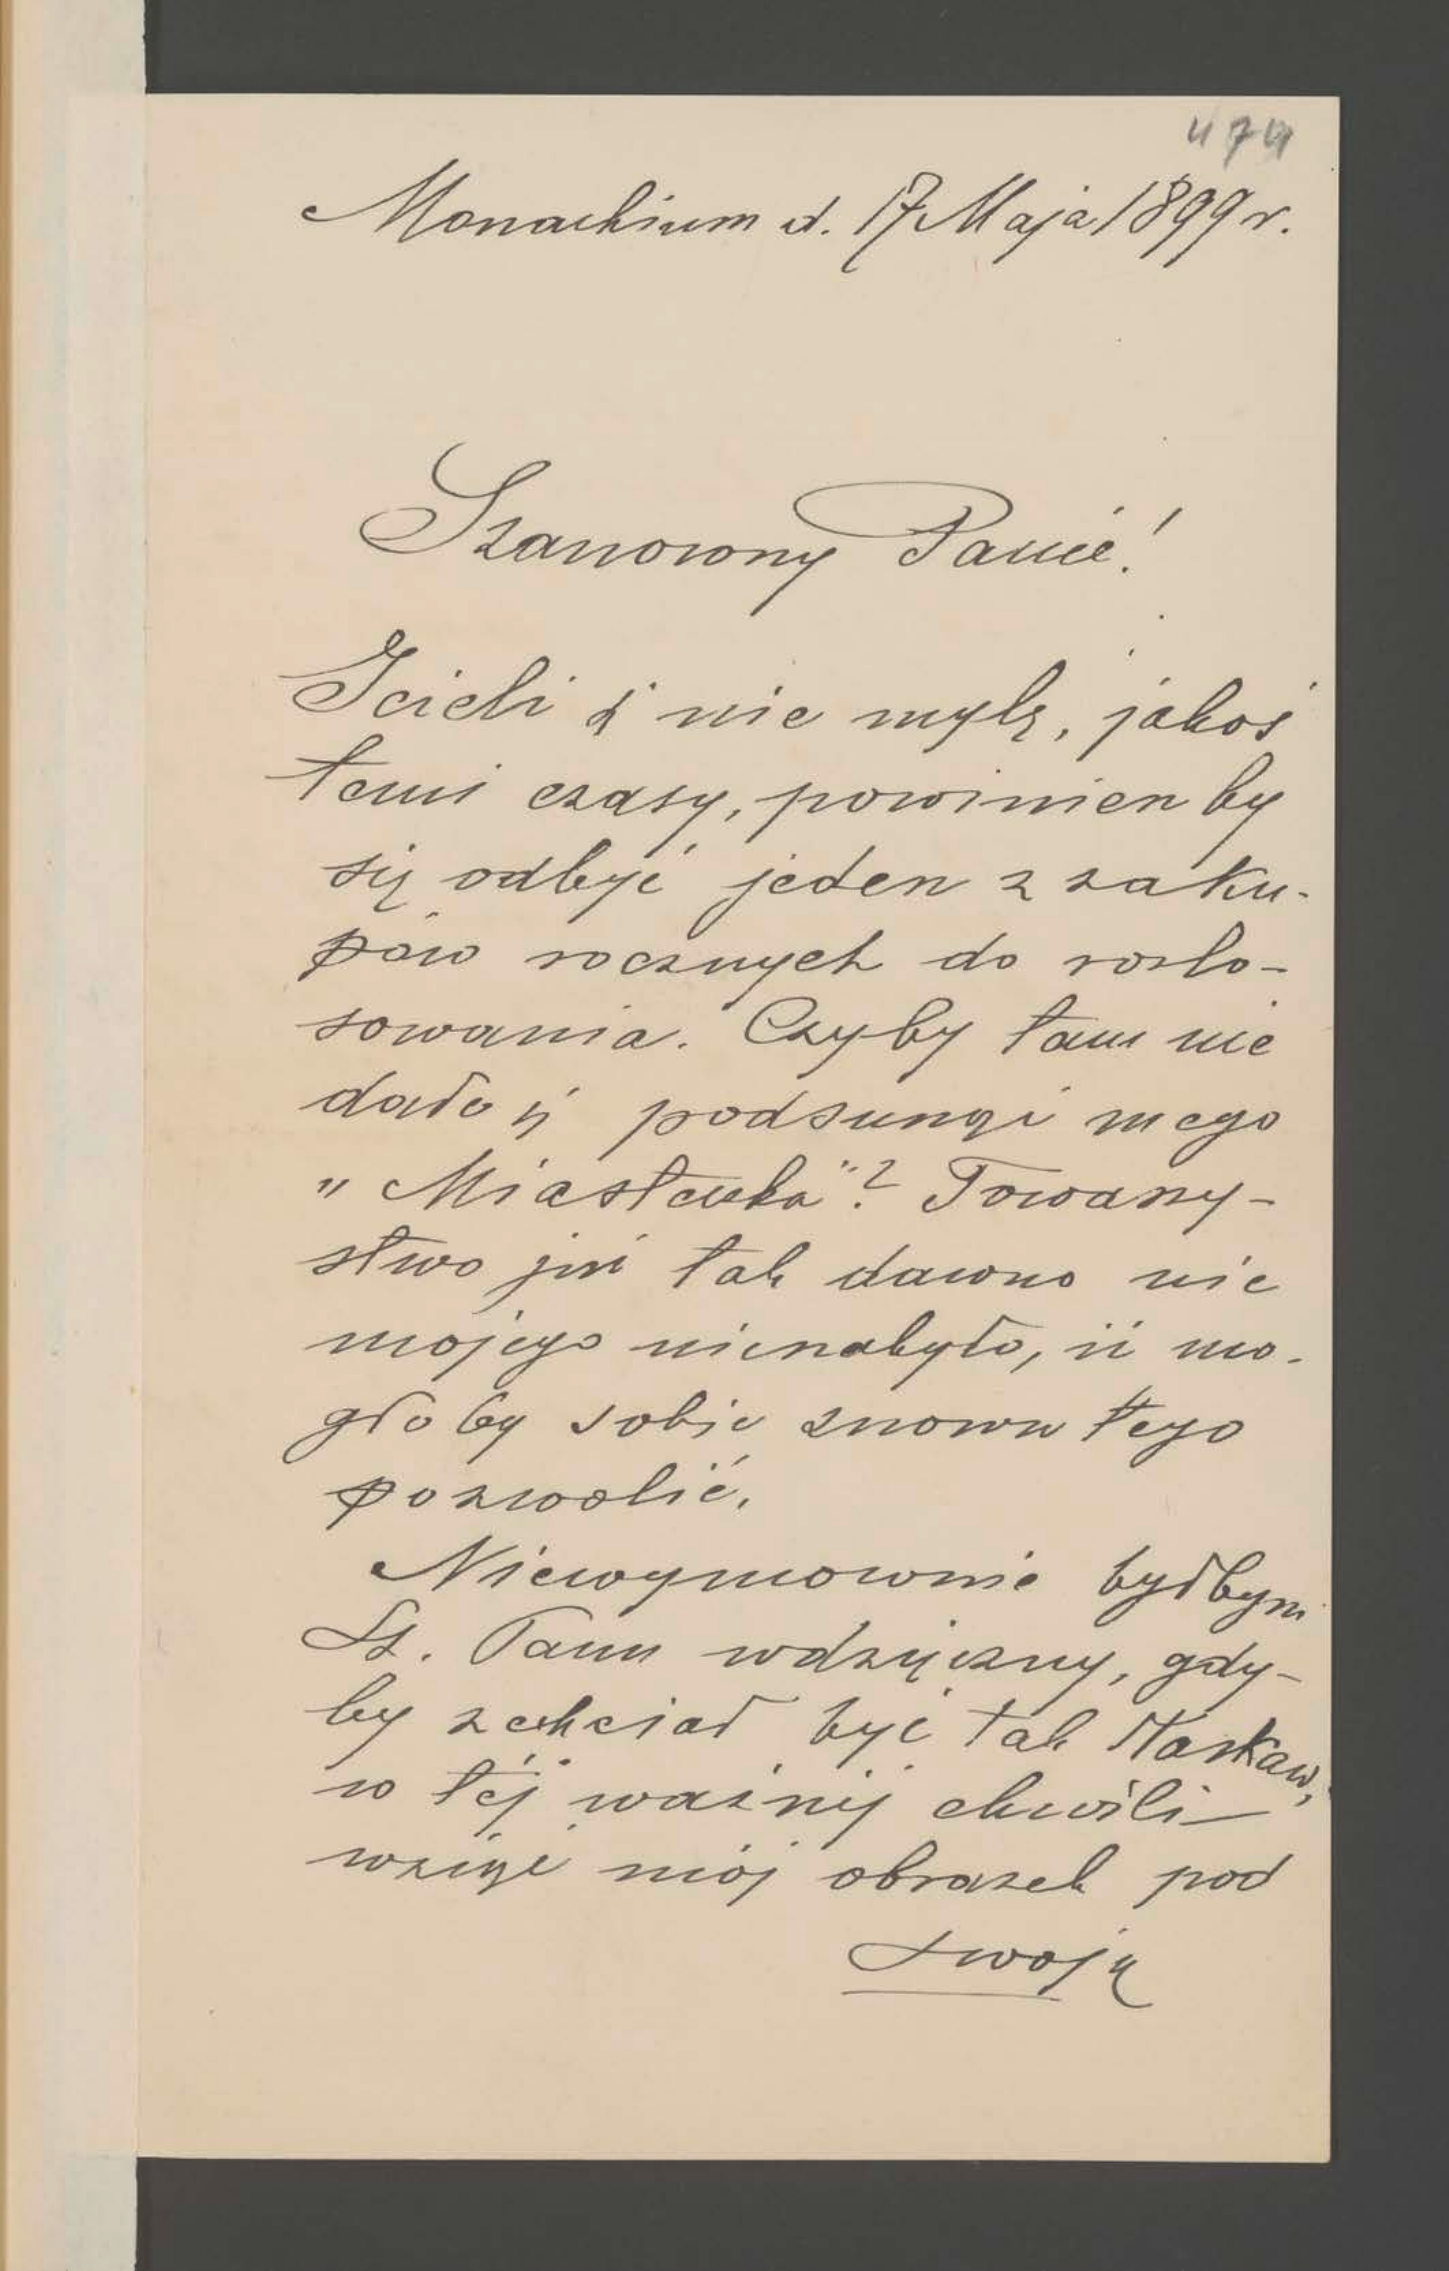 474
Monachium d. 17 Maja 1899 r.
Szanowny Panie!
Jeżeli się nie mylę, jakoś
temi czasy, powinien by
się odbyć jeden z zaku-
pów rocznych do rozlo-
sowania. Czyby tam nie
dało się podsunąć mego
„Miasteczka"? Towarzy-
stwo już tak dawno nic
mojego nienabyło, iż mo-
gło by sobie znowu tego
pozwolić.
Niewymownie byłbym
Sz. Panu wdzięczny, gdy-
by zechciał być tak łaskaw,
w téj ważnéj chwili
wziąć mój obrazek pod
swoją